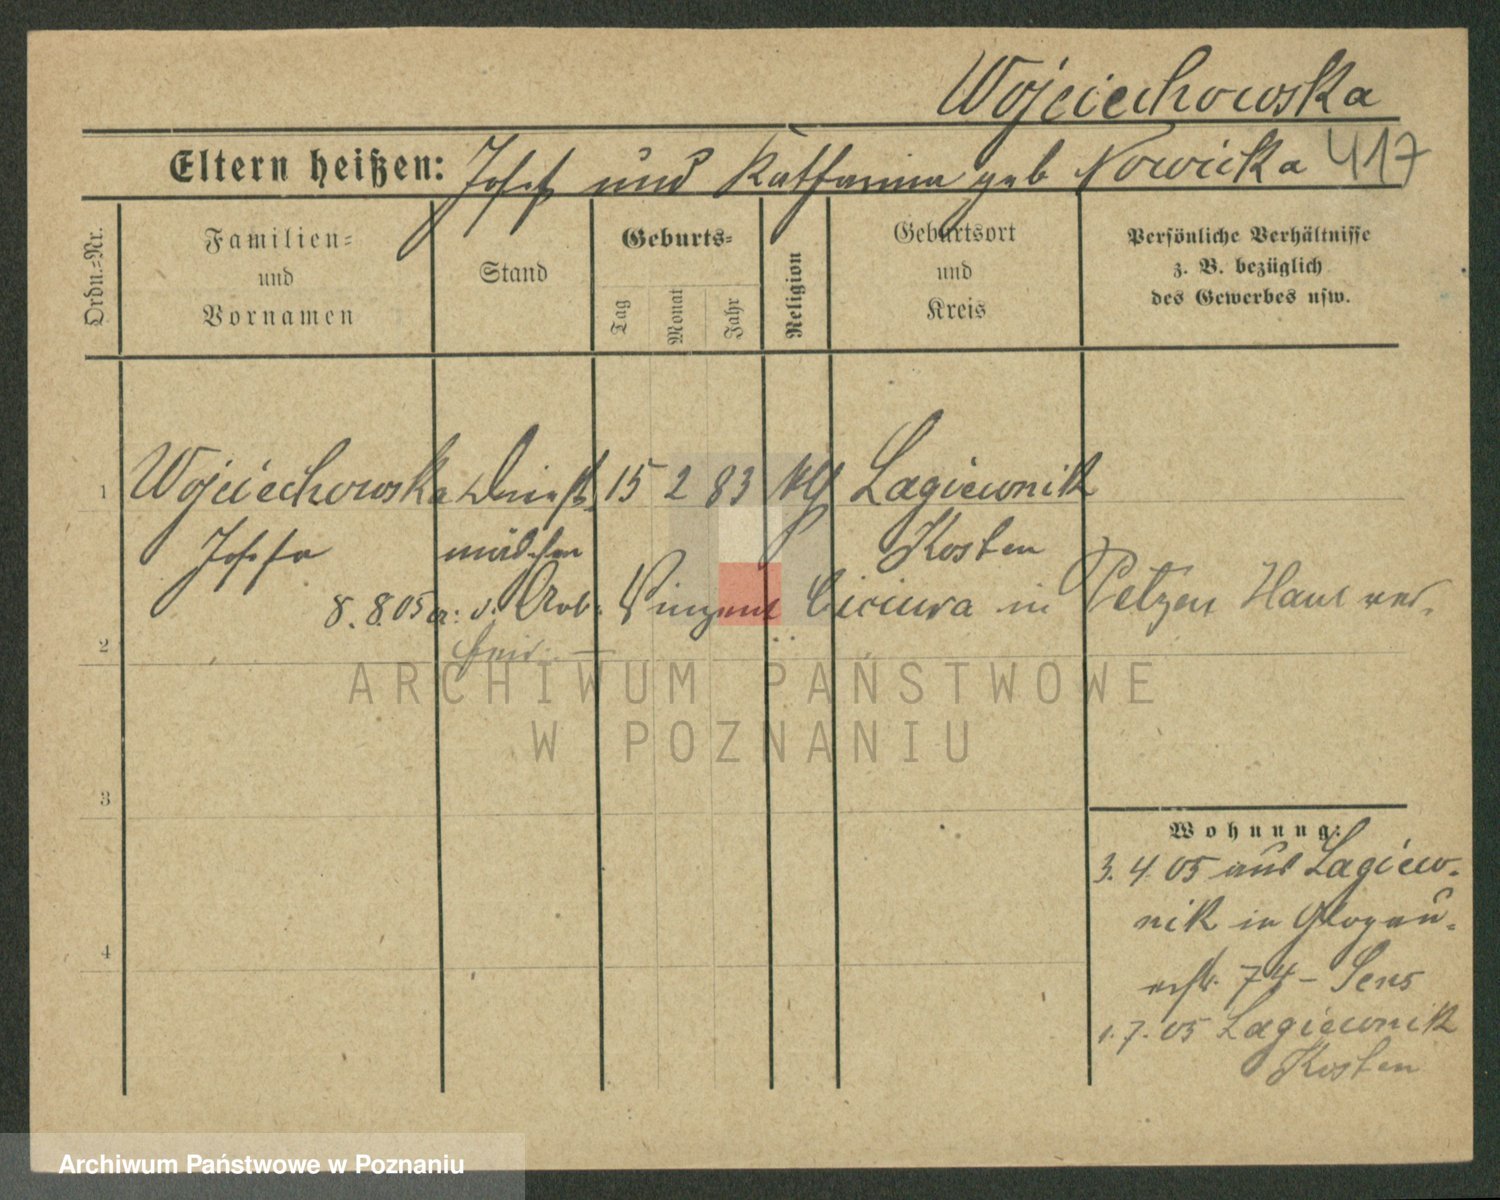 Wojciechowska
Eltern heißen: Josef und Katharina geb Nowicka 417
Ordn.-Nr.
Familien-
und
Vornamen
Stand
Geburts-
Tag
Monat
Jahr
Religion
Geburtsort
und
Kreis
Persönliche Verhältnisse
z. B. bezüglich
des Gewerbes usw.
1 Wojciechowska Dienst- 15 2 83 Lagiewnik
Josefa mädchen Kosten
8.8.05 a: d. Arb: Vinzent Ciciura in Petzen Haul ver-
2 heir.
3
Wohnung:
3. 4 05 aus Lagiew-
nik in Glogau-
erstr. 74 - Sens
4
1. 7. 05 Lagiewnik
Kosten
ARCHIWUM PAŃSTWOWE
W POZNANIU
Archiwum Państwowe w Poznaniu